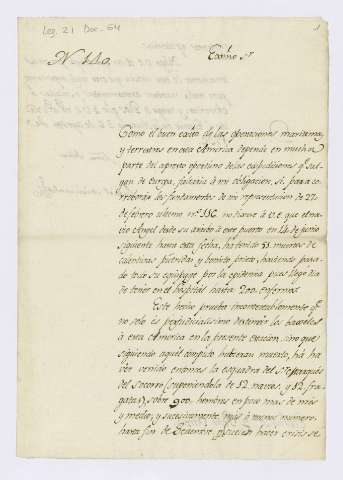 Leg. 21 Doc. 54
1
Exc̃mo Sr.
Como el buen exito de las operaciones maritimas,
y terrestres en esta America depende en mucha
parte del apresto oportuno de las expediciones qe. sal-
gan de Europa, faltaria á mi obligacion, si para co-
rroborar los fundamentos de mi representacion de 27 de
febrero ultimo no. no hiciese á V.E. que el na-
vio Angel desde su arribo á este puerto en 14 de junio
siguiente hasta esta fecha, ha tenido 53 muertos de
calenturas putridas y bomito prieto, habiendo pasa-
do toda su equipage por la epidemia pues llegó dia
de tener en el hospital hasta 200 enfermos.
Este hecho prueba incontestablemente qe.
no solo es perjudicialisimo destinar los baxeles
á esta America en la presente estacion, sino que
siguiendo aquel computo hubieran muerto, si hu-
viera venido entonces la esquadra del Sr. Marques
del Socorro (suponiendola de 12 navios, y 12 fra-
gatas) sobre 900 hombres en poco mas de mes
y medio; y sucesivamente, mas ó menos numero
hasta fin de Octubre, qe. suelen hacer crisis se